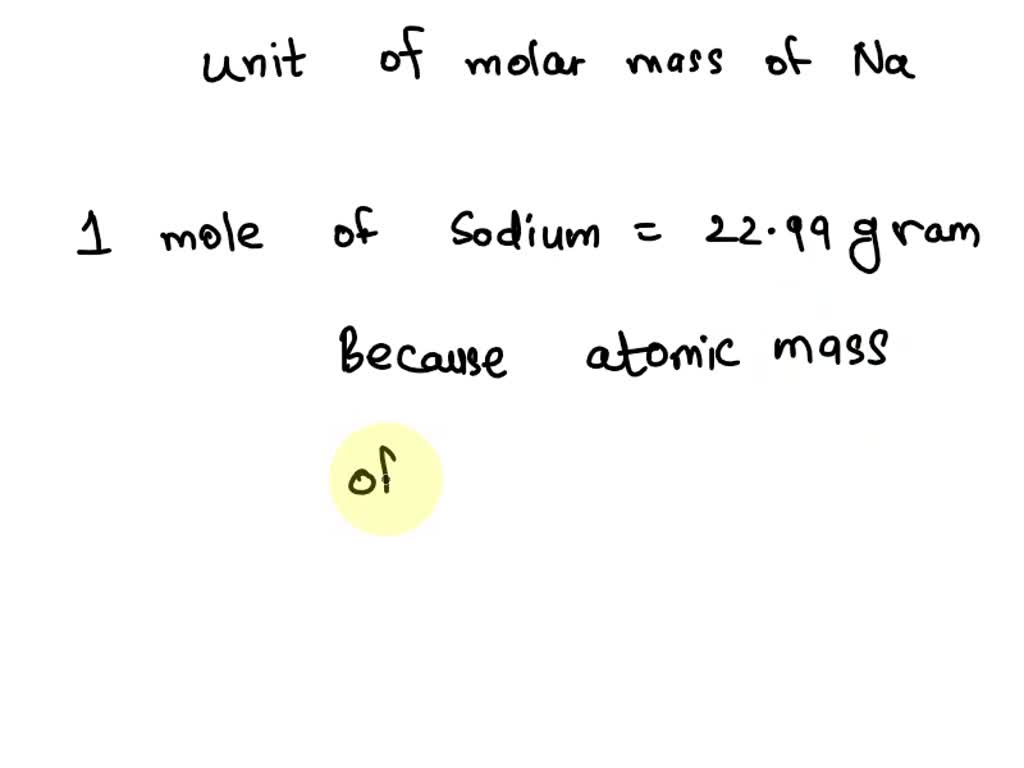 unit of molar mass of Na
1 mole of Sodium = 22.99 gram
Because atomic mass
of